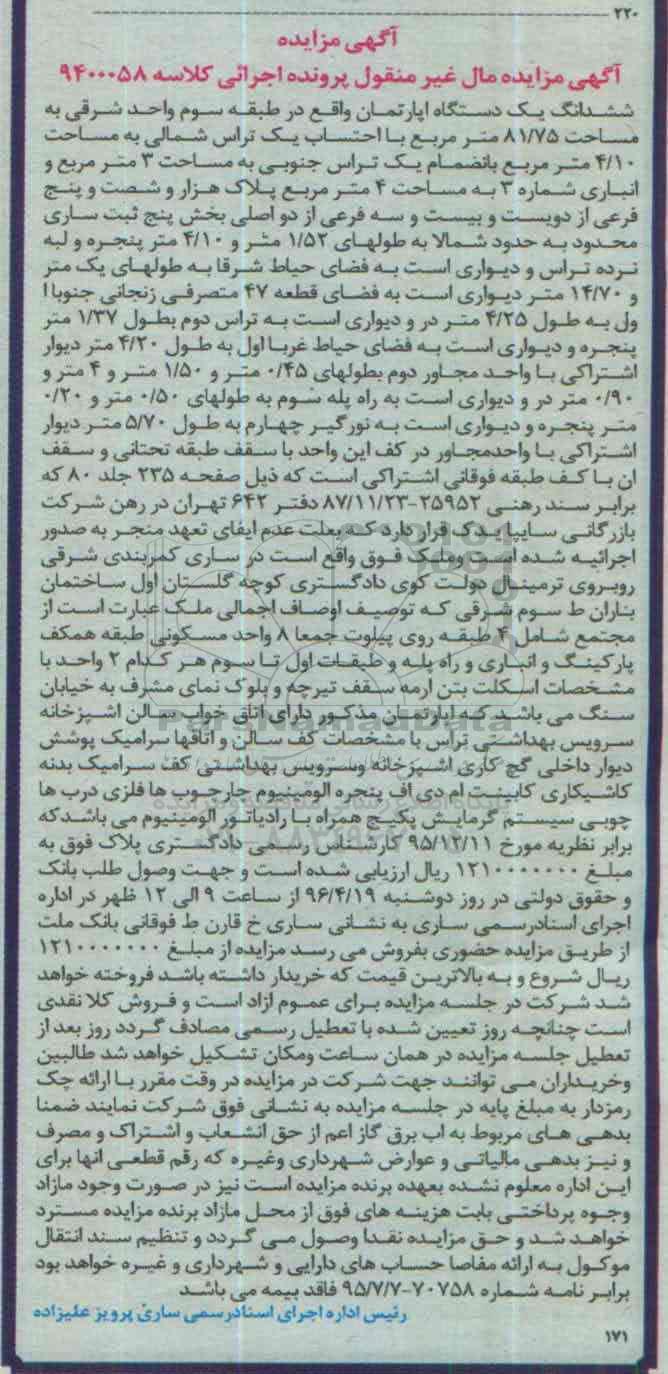 ۲۲۰
آگهی مزایده
آگهی مزایده مال غیر منقول پرونده اجرائی کلاسه ۹۴۰۰۰۵۸
ششدانگ یک دستگاه اپارتمان واقع در طبقه سوم واحد شرقی به
مساحت ۸۱/۷۵ متر مربع با احتساب یک تراس شمالی به مساحت
۴/۱۰ متر مربع بانضمام یک تراس جنوبی به مساحت ۳ متر مربع و
انباری شماره ۳ به مساحت ۴ متر مربع پلاک هزار و شصت و پنج
فرعی از دویست و بیست و سه فرعی از دو اصلی بخش پنج ثبت ساری
محدود به حدود شمالا به طولهای ۱/۵۲ متر و ۴/۱۰ متر پنجره و لبه
نرده تراس و دیواری است به فضای حیاط شرقا به طولهای یک متر
و ۱۴/۷۰ متر دیواری است به فضای قطعه ۴۷ متصرفی زنجانی جنوبا ا
ول به طول ۴/۲۵ متر در و دیواری است به تراس دوم بطول ۱/۳۷ متر
پنجره و دیواری است به فضای حیاط غربا اول به طول ۴/۲۰ متر دیوار
اشتراکی با واحد مجاور دوم بطولهای ۰/۴۵ متر و ۱/۵۰ متر و ۴ متر و
۰/۹۰ متر در و دیواری است به راه پله سوم به طولهای ۰/۵۰ متر و ۰/۲۰
متر پنجره و دیواری است به نورگیر چهارم به طول ۵/۷۰ متر دیوار
اشتراکی با واحدمجاور در کف این واحد با سقف طبقه تحتانی و سقف
ان با کف طبقه فوقانی اشتراکی است که ذیل صفحه ۲۳۵ جلد ۸۰ که
برابر سند رهنی ۲۵۹۵۲-۸۷/۱۱/۲۳ دفتر ۶۴۲ تهران در رهن شرکت
بازرگانی سایپا یدک قرار دارد که بعلت عدم ایفای تعهد منجر به صدور
اجرائیه شده است وملک فوق واقع است در ساری کمربندی شرقی
روبروی ترمینال دولت کوی دادگستری کوچه گلستان اول ساختمان
باران ط سوم شرقی که توصیف اوصاف اجمالی ملک عبارت است از
مجتمع شامل ۴ طبقه روی پیلوت جمعا ۸ واحد مسکونی طبقه همکف
پارکینگ و انباری و راه پله و طبقات اول تا سوم هر کدام ۲ واحد با
مشخصات اسکلت بتن ارمه سقف تیرچه و بلوک نمای مشرف به خیابان
سنگ می باشد که اپارتمان مذکور دارای اتاق خواب سالن اشپزخانه
سرویس بهداشتی تراس با مشخصات کف سالن و اتاقها سرامیک پوشش
دیوار داخلی گچ کاری اشپزخانه وسرویس بهداشتی کف سرامیک بدنه
کاشیکاری کابینت ام دی اف پنجره الومینیوم چارچوب ها فلزی درب ها
چوبی سیستم گرمایش پکیج همراه با رادیاتور الومینیوم می باشدکه
برابر نظریه مورخ ۹۵/۱۲/۱۱ کارشناس رسمی دادگستری پلاک فوق به
مبلغ ۱۲۱۰۰۰۰۰۰۰ ریال ارزیابی شده است و جهت وصول طلب بانک
و حقوق دولتی در روز دوشنبه ۹۶/۴/۱۹ از ساعت ۹ الی ۱۲ ظهر در اداره
اجرای اسنادرسمی ساری به نشانی ساری خ قارن ط فوقانی بانک ملت
از طریق مزایده حضوری بفروش می رسد مزایده از مبلغ ۱۲۱۰۰۰۰۰۰۰
ریال شروع و به بالاترین قیمت که خریدار داشته باشد فروخته خواهد
شد شرکت در جلسه مزایده برای عموم ازاد است و فروش کلا نقدی
است چنانچه روز تعیین شده با تعطیل رسمی مصادف گردد روز بعد از
تعطیل جلسه مزایده در همان ساعت ومکان تشکیل خواهد شد طالبین
وخریداران می توانند جهت شرکت در مزایده در وقت مقرر با ارائه چک
رمزدار به مبلغ پایه در جلسه مزایده به نشانی فوق شرکت نمایند ضمنا
بدهی های مربوط به اب برق گاز اعم از حق انشعاب و اشتراک و مصرف
و نیز بدهی مالیاتی و عوارض شهرداری وغیره که رقم قطعی انها برای
این اداره معلوم نشده بعهده برنده مزایده است نیز در صورت وجود مازاد
وجوه پرداختی بابت هزینه های فوق از محل مازاد برنده مزایده مسترد
خواهد شد و حق مزایده نقدا وصول می گردد و تنظیم سند انتقال
موکول به ارائه مفاصا حساب های دارایی و شهرداری و غیره خواهد بود
برابر نامه شماره ۷۰۷۵۸-۹۵/۷/۷ فاقد بیمه می باشد
رئیس اداره اجرای اسنادرسمی ساری پرویز علیزاده
۱۷۱